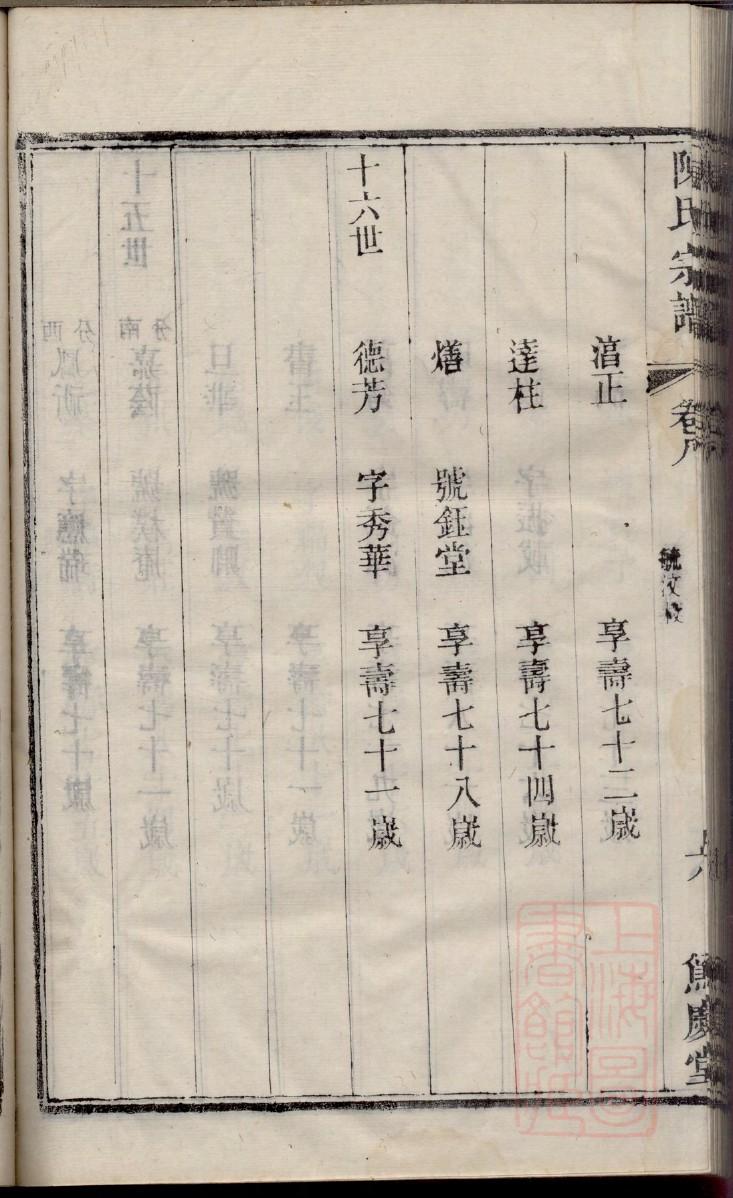 陳氏宗譜
卷
六
篤慶堂
湻正 享壽七十二歲
達柱 享壽七十四歲
𤏲 號鈺堂 享壽七十八歲
十六世 德芳 字秀華 享壽七十一歲
上海圖書館藏